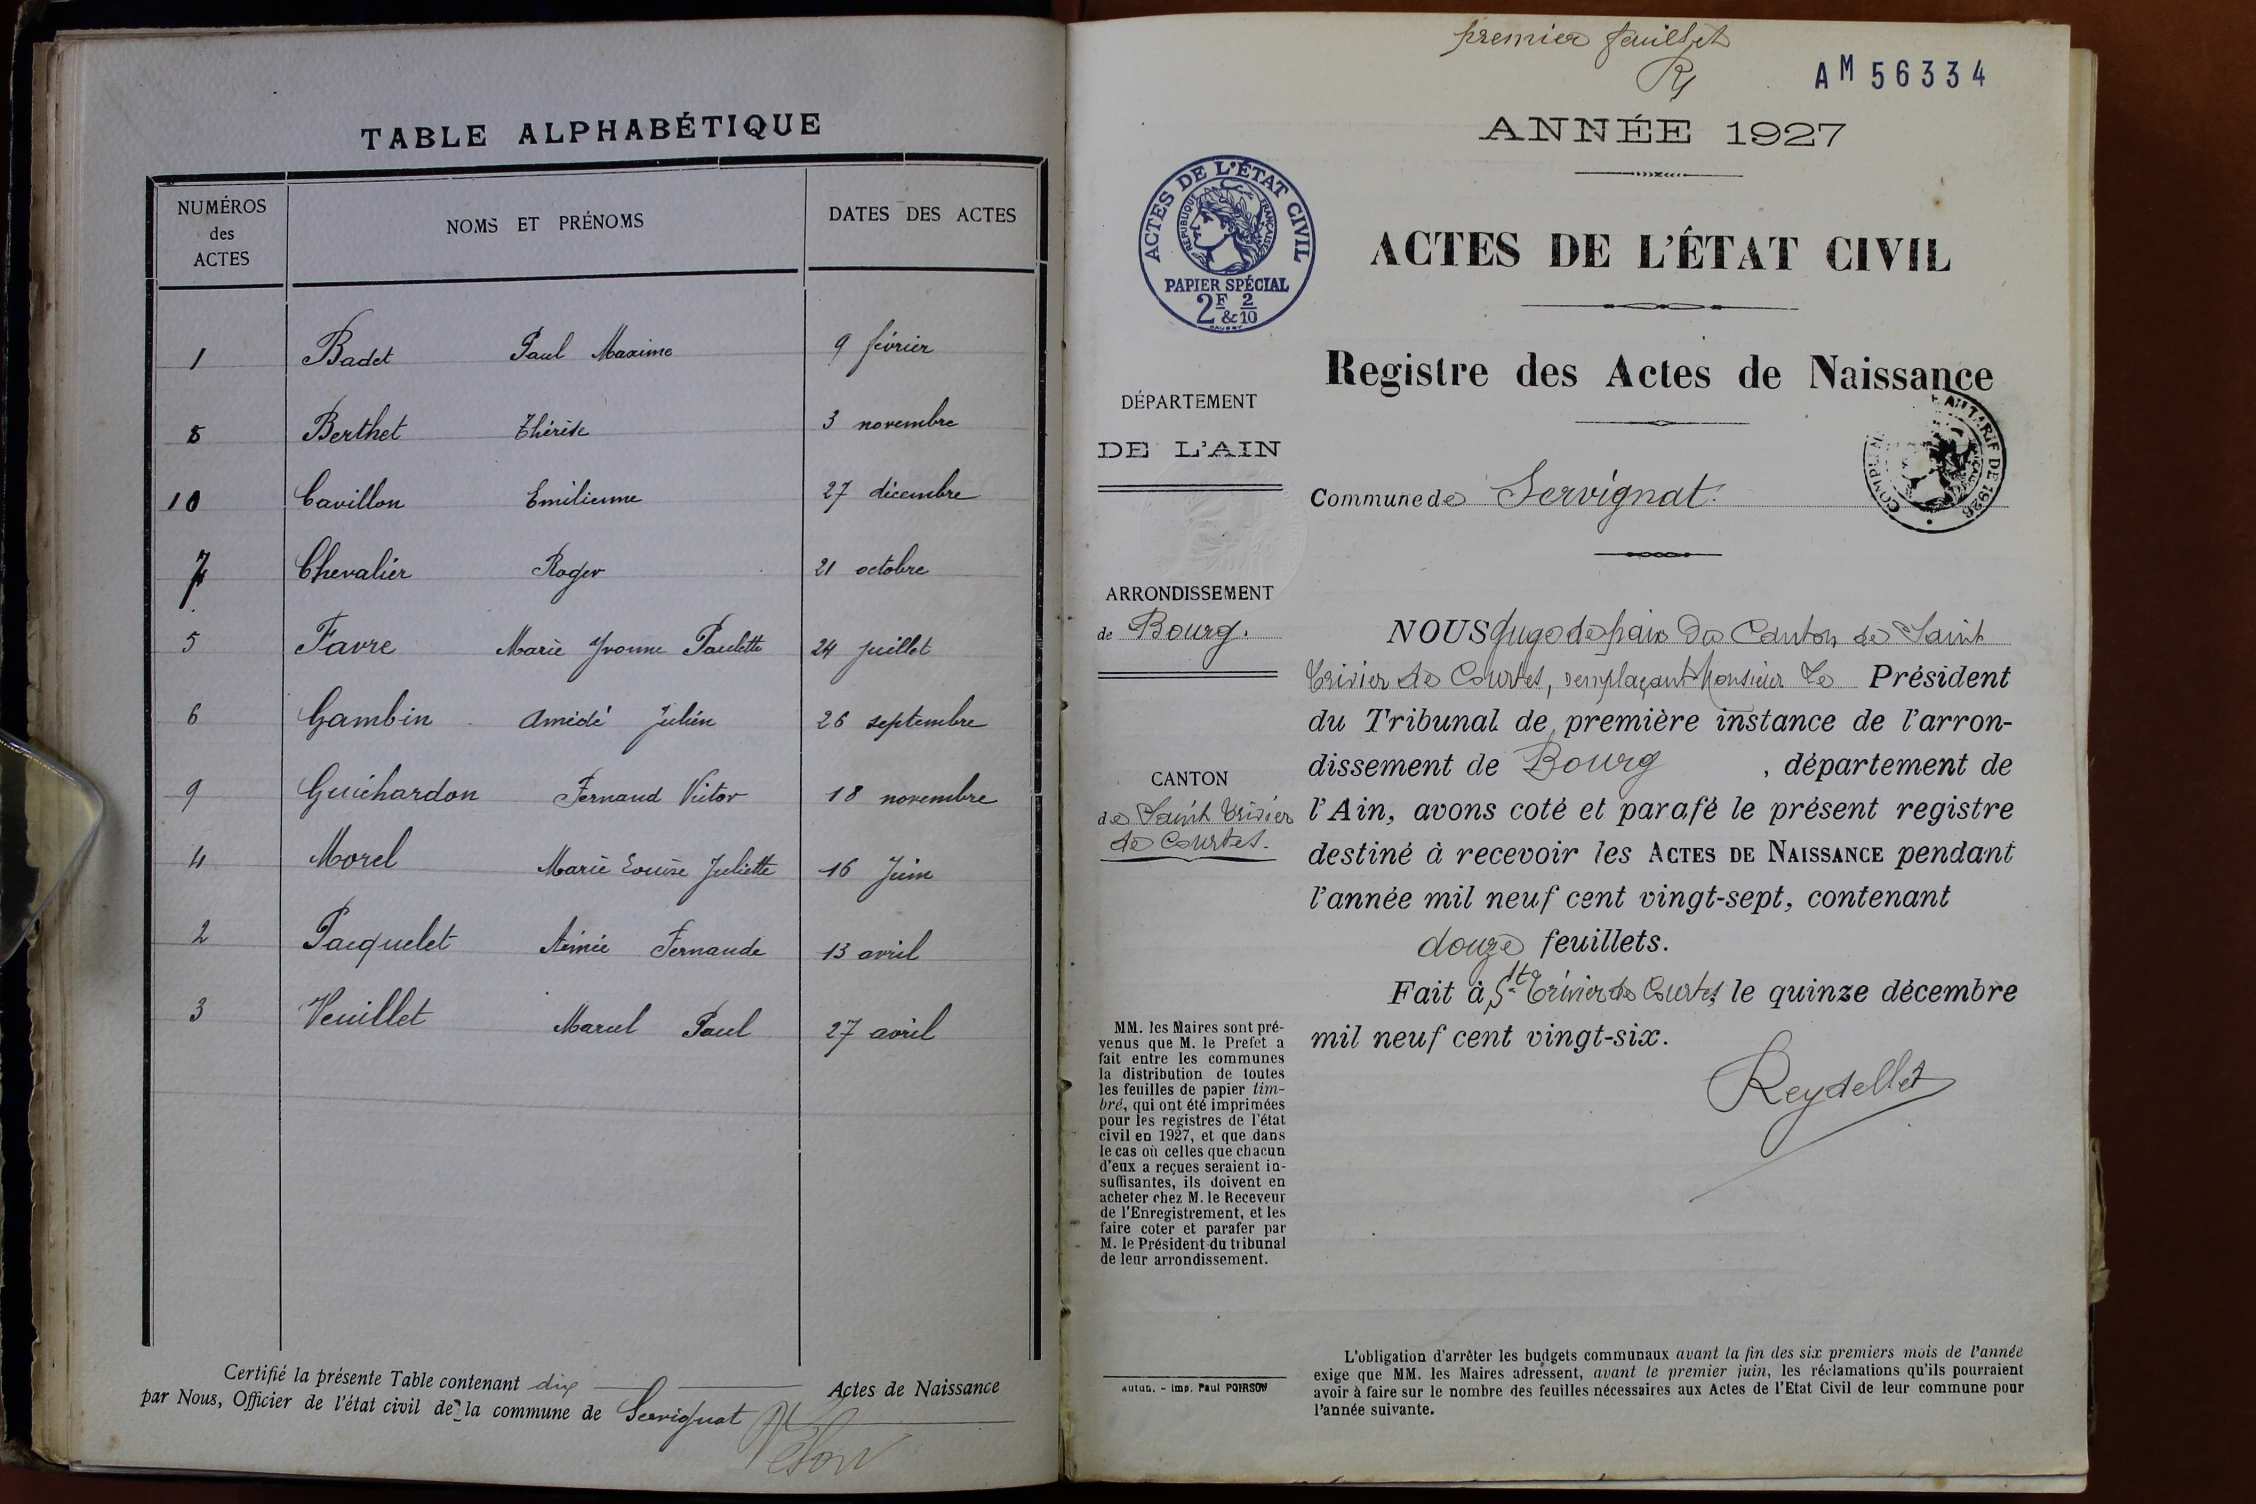 TABLE ALPHABÉTIQUE
NUMÉROS
des
ACTES
NOMS ET PRÉNOMS
DATES DES ACTES
1 Badet Paul Maxime 9 février
8 Berthet Thérèse 3 novembre
10 Cavillon Emilienne 27 décembre
7 Chevalier Roger 21 octobre
5 Favre Marie Yvonne Paulette 24 juillet
6 Gambin Amédé Julien 26 septembre
9 Guichardon Fernand Victor 18 novembre
4 Morel Marie Louise Juliette 16 Juin
2 Pacquelet Aimée Fernande 13 avril
3 Veuillet Marcel Paul 27 avril
Certifié la présente Table contenant dix Actes de Naissance
par Nous, Officier de l'état civil de la commune de Servignat
premier feuillet
AM 56334
ANNÉE 1927
ACTES DE L'ÉTAT CIVIL
RÉPUBLIQUE FRANÇAISE
PAPIER SPÉCIAL
2F & 2/10
ACTES DE L'ÉTAT CIVIL
Registre des Actes de Naissance
TARIF DE 1926
DÉPARTEMENT
DE L'AIN
Commune de Servignat.
ARRONDISSEMENT
de Bourg.
CANTON
de Saint Trivier
de Courtes.
NOUS Juge de paix du Canton de Saint
Trivier de Courtes, remplaçant Monsieur le Président
du Tribunal de première instance de l'arron-
dissement de Bourg, département de
l'Ain, avons coté et parafé le présent registre
destiné à recevoir les ACTES DE NAISSANCE pendant
l'année mil neuf cent vingt-sept, contenant
douze feuillets.
Fait à St Trivier de Courtes le quinze décembre
mil neuf cent vingt-six.
Reydellet
MM. les Maires sont pré-
venus que M. le Préfet a
fait entre les communes
la distribution de toutes
les feuilles de papier tim-
bré, qui ont été imprimées
pour les registres de l'état
civil en 1927, et que dans
le cas où celles que chacun
d'eux a reçues seraient in-
suffisantes, ils doivent en
acheter chez M. le Receveur
de l'Enregistrement, et les
faire coter et parafer par
M. le Président du tribunal
de leur arrondissement.
Autun. - Imp. Paul POIRSON
L'obligation d'arrêter les budgets communaux avant la fin des six premiers mois de l'année
exige que MM. les Maires adressent, avant le premier juin, les réclamations qu'ils pourraient
avoir à faire sur le nombre des feuilles nécessaires aux Actes de l'Etat Civil de leur commune pour
l'année suivante.